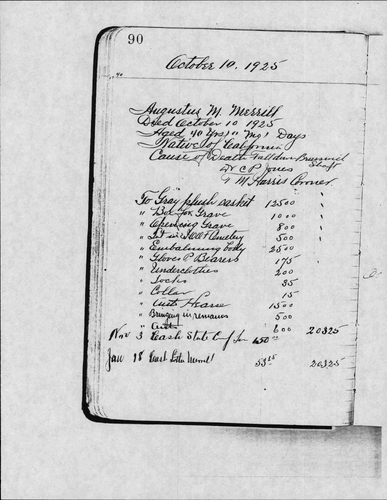 90
October 10. 1925
Augustus M. Merrill
Died October 10 1925
Aged 40 Yrs " Mo's Days
Native of California
Cause of Death Fall down Brunswick
Shaft
Dr C P Jones
M Harris Coroner
To Gray plush casket 12500
" Box for Grave 1000
" Opening Grave 800
" Lot in Cemetery 500
" Embalming body 2500
" Gloves P Bearers 175
" Underclothes 200
" Socks 35
" Collar 15
" Auto Hearse 1500
" Bringing in remains 500
" 600 20325
Nov 3 Cash State 15000
Jan 18 Cash 53 25 20325